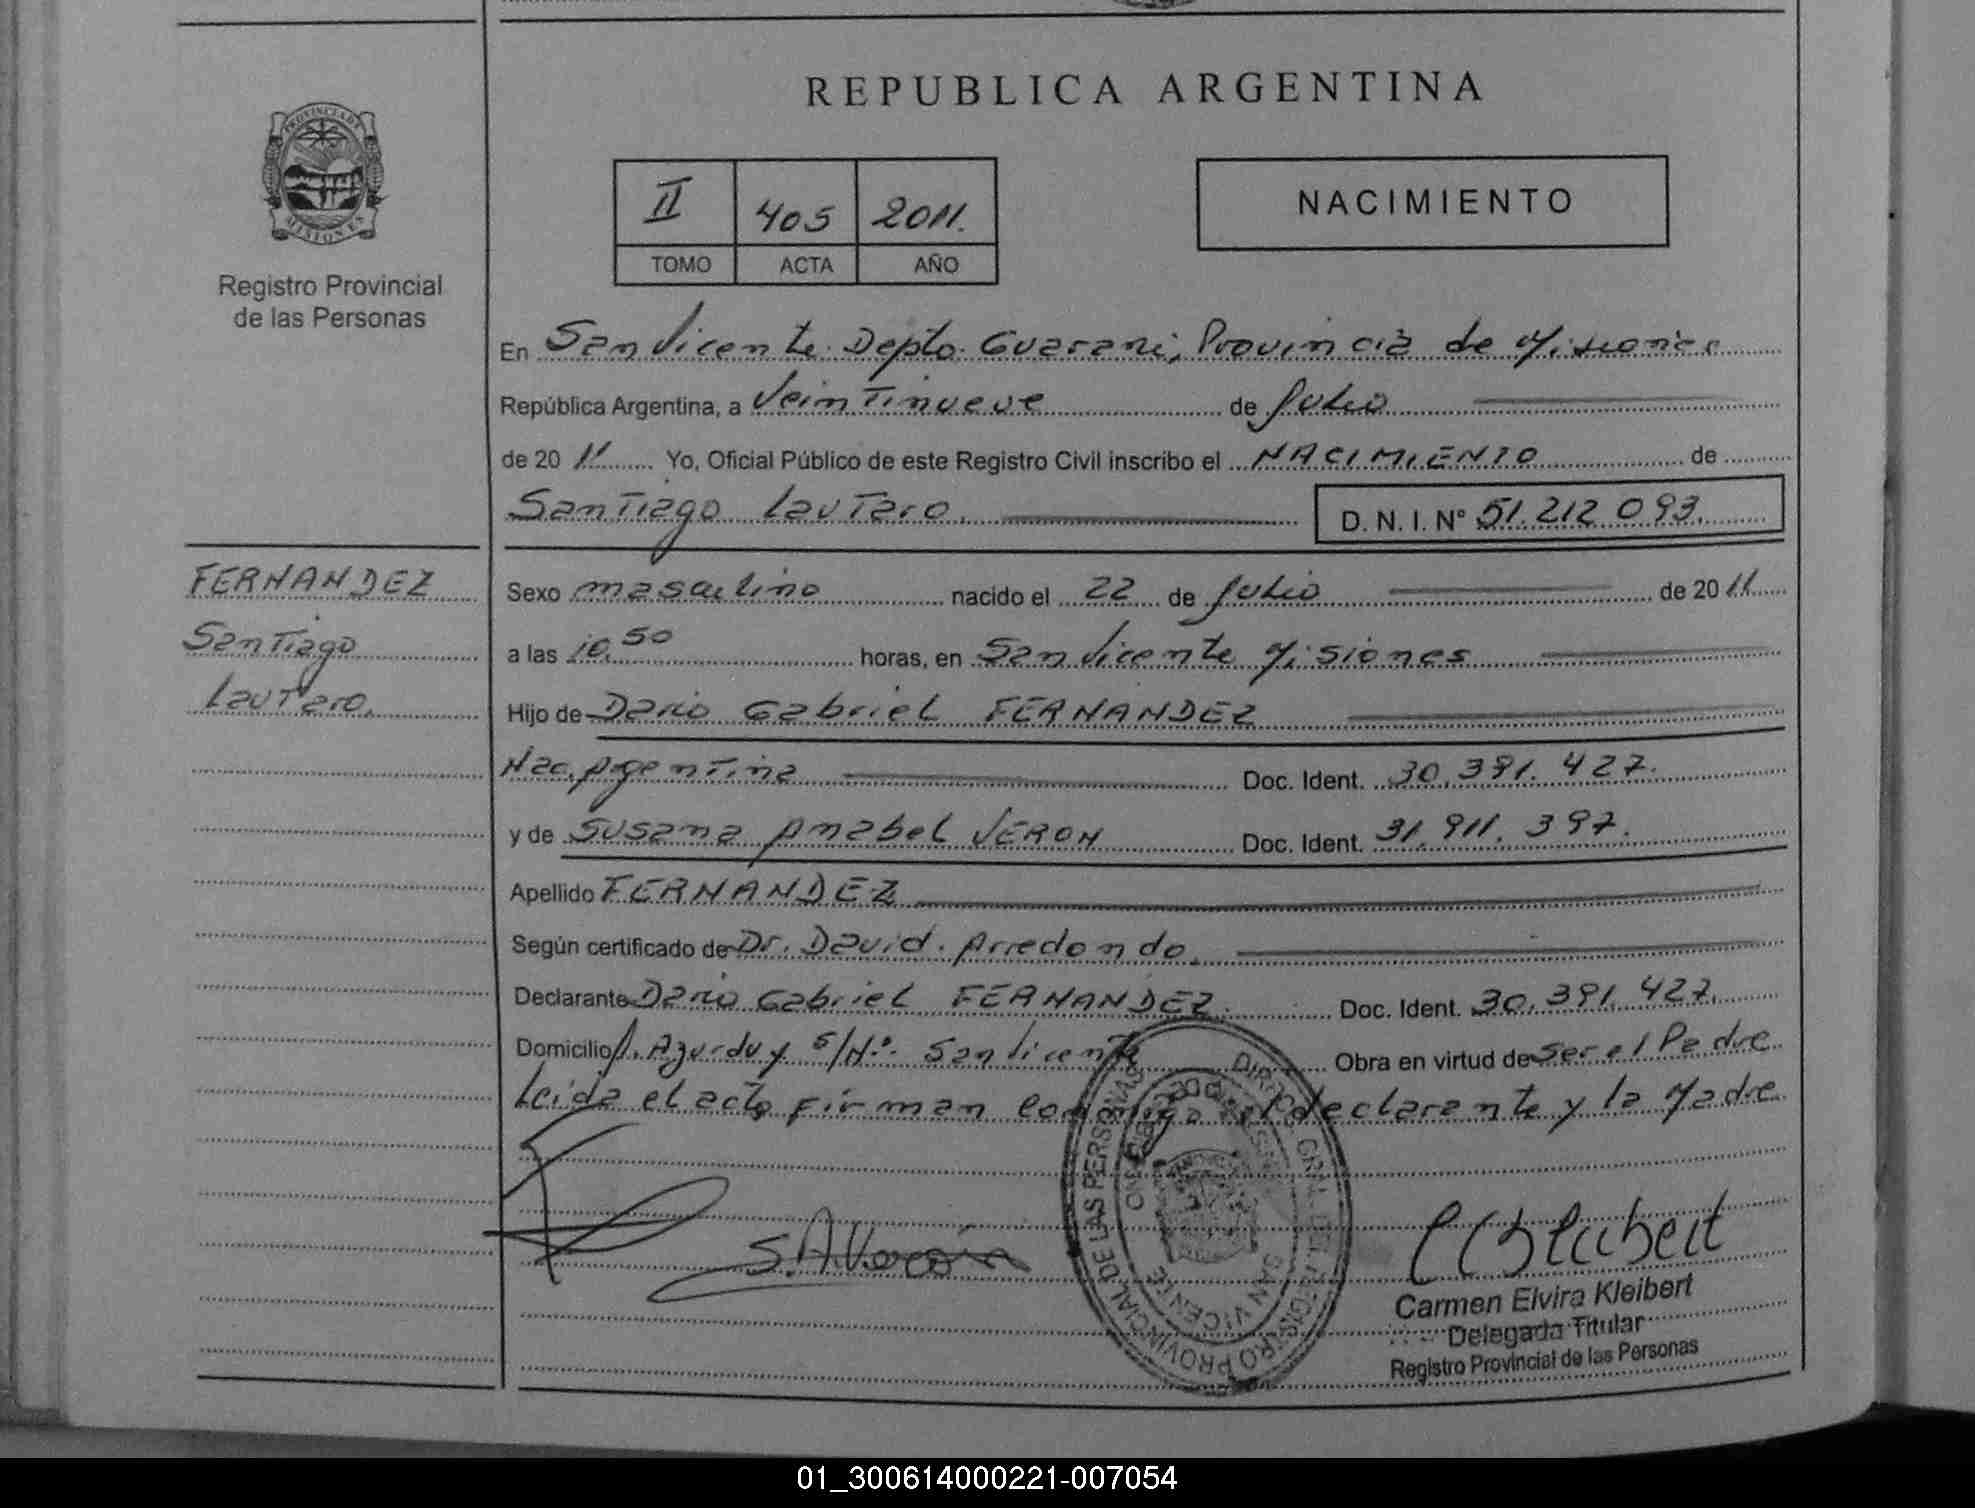 REPUBLICA ARGENTINA
PROVINCIA DE MISIONES
Registro Provincial
de las Personas
II 405 2011.
TOMO ACTA AÑO
NACIMIENTO
En San Vicente Depto. Guarani, Provincia de Misiones
República Argentina, a Veintinueve de Julio
de 2011 Yo, Oficial Público de este Registro Civil inscribo el NACIMIENTO de
Santiago Lautaro. D. N. I. Nº 51.212.093.
FERNANDEZ
Santiago
Lautaro.
Sexo masculino nacido el 22 de Julio de 2011
a las 10.50 horas, en San Vicente Misiones
Hijo de Dario Gabriel FERNANDEZ
Nac. Argentina Doc. Ident. 30.391.427.
y de Susana Anabel VERON Doc. Ident. 31.911.397.
Apellido FERNANDEZ
Según certificado de Dr. David Arredondo.
Declarante Dario Gabriel FERNANDEZ. Doc. Ident. 30.391.427.
Domicilio J. Azurduy S/Nº. San Vicente Obra en virtud de ser el Padre
Leida el acta firman conmigo el declarante y la Madre
S.A.Verón
REGISTRO PROVINCIAL DE LAS PERSONAS
SAN VICENTE
Carmen Elvira Kleibert
Delegada Titular
Registro Provincial de las Personas
01_300614000221-007054